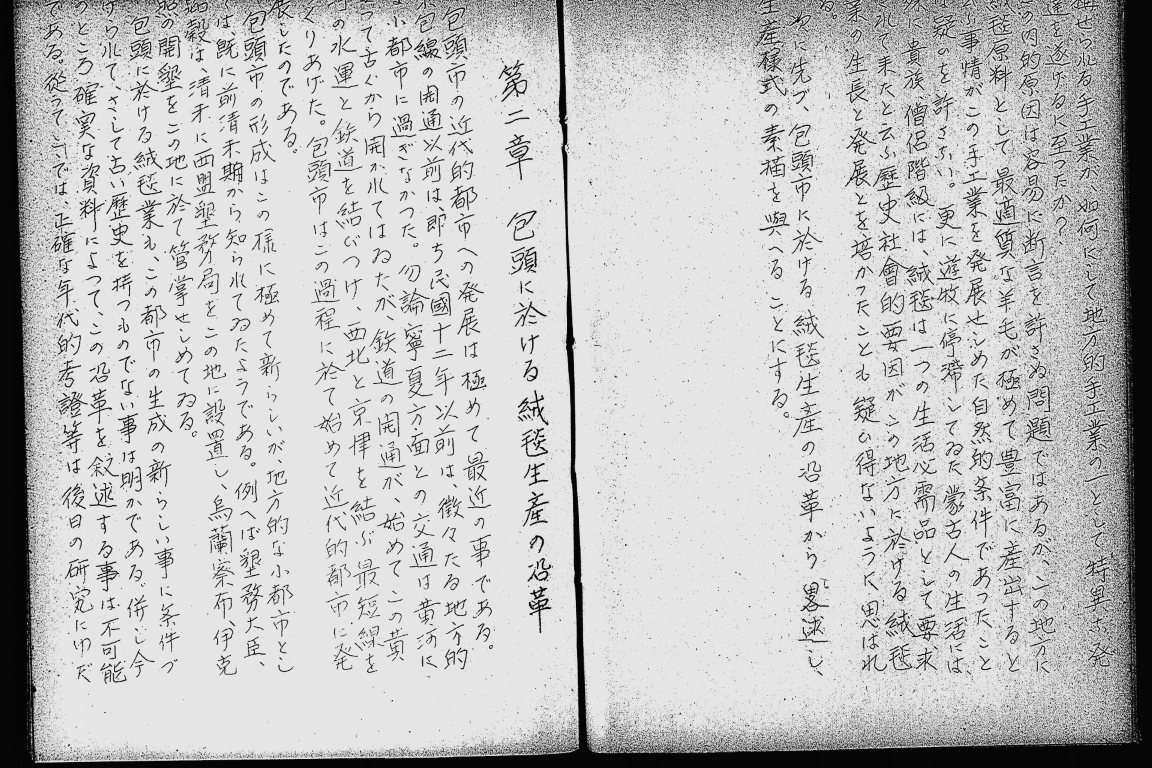 せられる手工業が、如何にして地方的手工業の一として特異な発
達を遂げるに至つたか?
この内的原因は容易に断言を許さぬ問題ではあるが、この地方に
絨毯原料として最適質な羊毛が極めて豊富に産出すると
云ふ事情がこの手工業を発展せしめた自然的条件であつたこと
は疑ひを許さない。更に遊牧に停滞してゐた蒙古人の生活には、
殊に貴族僧侶階級には、絨毯は一つの生活必需品として要求
されて来たと云ふ歴史社會的要因がこの地方に於ける絨毯
業の生長と発展とを培かつたことも疑ひ得ないように思はれ
る。
次に先づ、包頭市に於ける絨毯生産の沿革から畧述し、
生産様式の素描を與へることにする。
第二章 包頭に於ける絨毯生産の沿革
包頭市の近代的都市への発展は極めて最近の事である。
包線の開通以前は、即ち民國十二年以前は、微々たる地方的
な小都市に過ぎなかつた。勿論寧夏方面との交通は黄河に
つて古くから開かれてはゐたが、鉄道の開通が、始めてこの黄
河の水運と鉄道を結びつけ、西北と京津を結ぶ最短線を
くりあげた。包頭市はこの過程に於て始めて近代的都市に発
展したのである。
包頭市の形成はこの様に極めて新らしいが地方的な小都市とし
ては、既に前清末期から知られてゐたようである。例へば墾務大臣、
貽穀は清末に西盟墾務局をこの地に設置し、烏蘭察布、伊克
昭の開墾をこの地に於て管掌せしめてゐる。
包頭に於ける絨毯業も、この都市の生成の新らしい事に条件づ
けられて、さして古い歴史を持つものでない事は明かである。併し今
のところ確実な資料によつて、この沿革を叙述する事は不可能
である。従つてこゝでは、正確な年代的考證等は後日の研究にゆだ